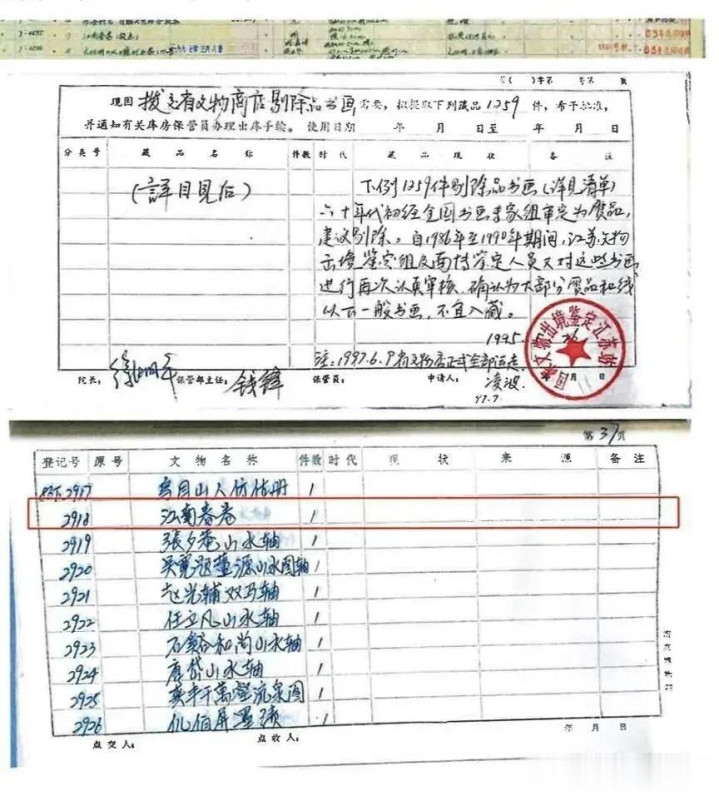 现因 拨交省文物商店剔除品书画 需要，拟提取下列藏品 1259 件，希予批准，
并通知有关库房保管员办理出库手续。 使用日期 年 月 日至 年 月 日
分类号 藏品名称 件数 时代 藏品现状 备注
(詳目見后)
下例1259件剔除品书画(详见清单)
六十年代初经全国书画专家组审定为赝品，
建议剔除。自1986年至1990年期间，江苏文物
出境鉴定组及南博鉴定人员又对这些书画
进行再次认真审核，确认为大部分赝品和线
以下一般书画，不宜入藏。
1995.
注：1997.6.9 省文物店正式全部运走
凌波
97.7
院长： 徐湖平 保管部主任： 钱锋 保管员： 申请人： 月 日
第37页
登记号 原号 文物名称 件数 时代 现状 来源 备注
2917 仿 册 1
2918 江南春卷 1
2919 張夕菴山水轴 1
2920 吴寛题董源山水图轴 1
2921 赵光辅双马轴 1
2922 任立凡山水轴 1
2923 石谿和尚山水轴 1
2924 唐岱山水轴 1
2925 千萬壑流泉图 1
2926 仇伯屏墨 1
点交人： 点收人： 年 月 日